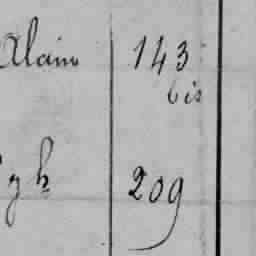 Alain 143
bis
gh 209